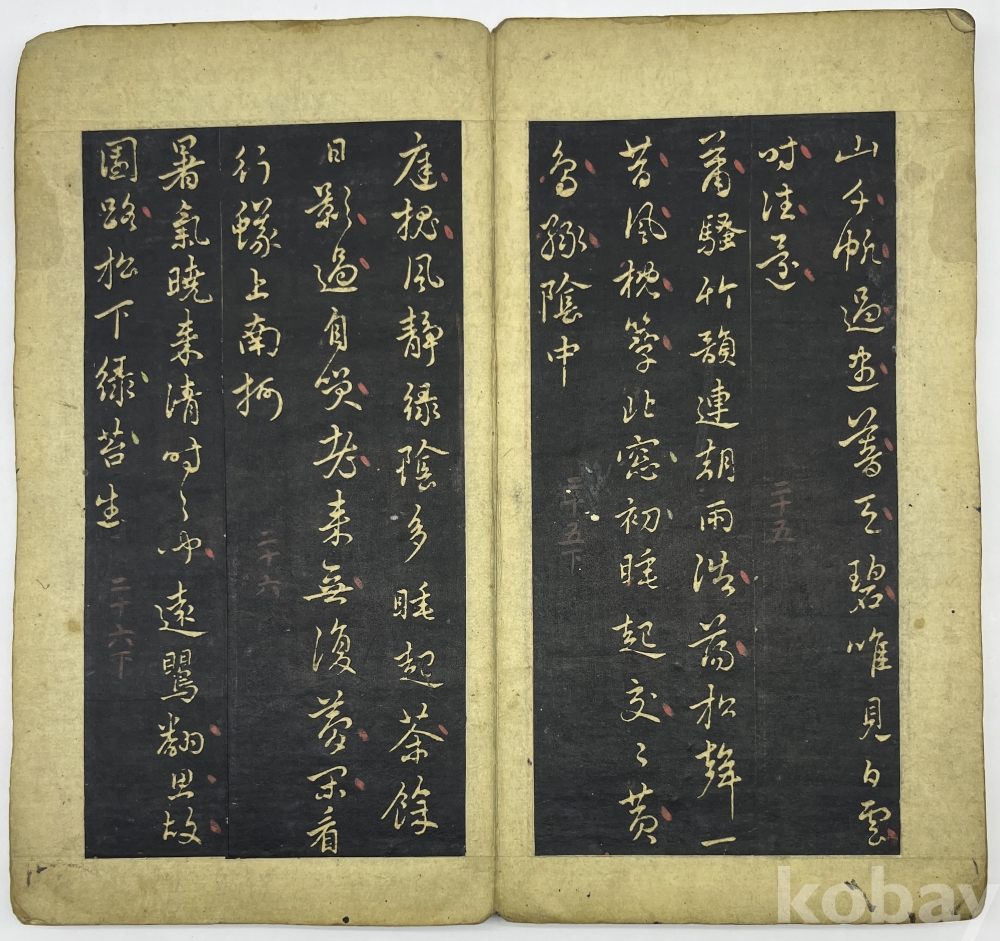 山千帆過盡暮天碧唯見白雲
時往還
二十五
蕭騷竹韻連朝雨浩蕩松聲一
昔風枕簟北窓初睡起交〻黃
鳥綠陰中
二十五下
庭槐風靜綠陰多睡起茶餘
日影過自笑老來無復夢閑看
行蟻上南柯
二十六
暑氣曉來清時〻聞遠鶯翻思故
園路松下綠苔生
二十六下
kobay